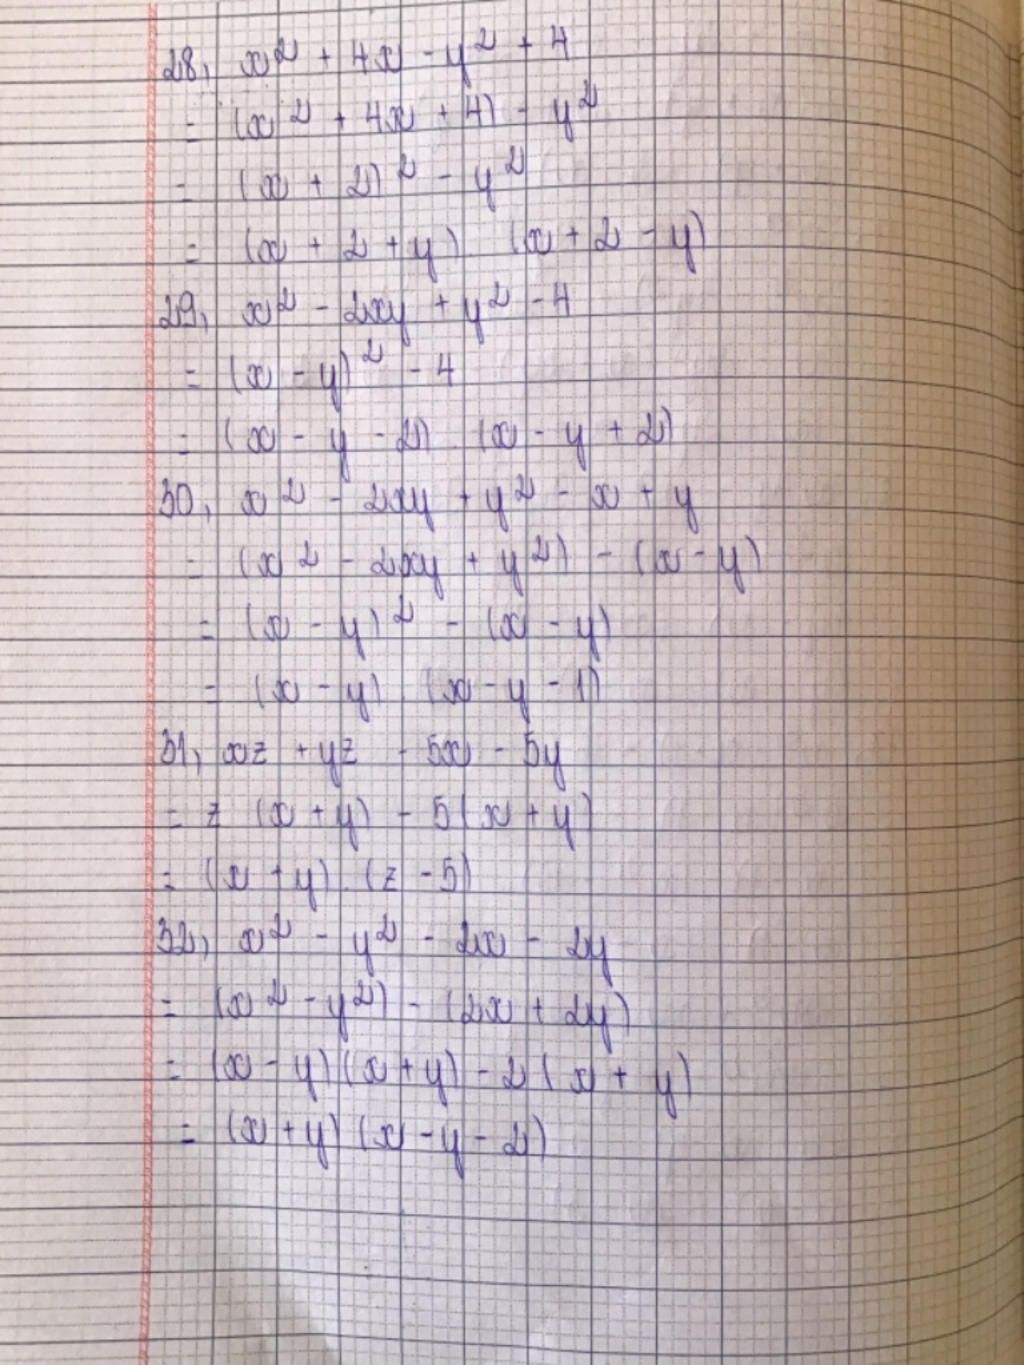 28, x² + 4x - y² + 4
= (x² + 4x + 4) - y²
= (x + 2)² - y²
= (x + 2 + y) (x + 2 - y)
29, x² - 2xy + y² - 4
= (x - y)² - 4
= (x - y - 2) . (x - y + 2)
30, x² - 2xy + y² - x + y
= (x² - 2xy + y²) - (x - y)
= (x - y)² - (x - y)
= (x - y) . (x - y - 1)
31, xz + yz - 5x - 5y
= z (x + y) - 5(x + y)
= (x + y) . (z - 5)
32, x² - y² - 2x - 2y
= (x² - y²) - (2x + 2y)
= (x - y)(x + y) - 2(x + y)
= (x + y)(x - y - 2)